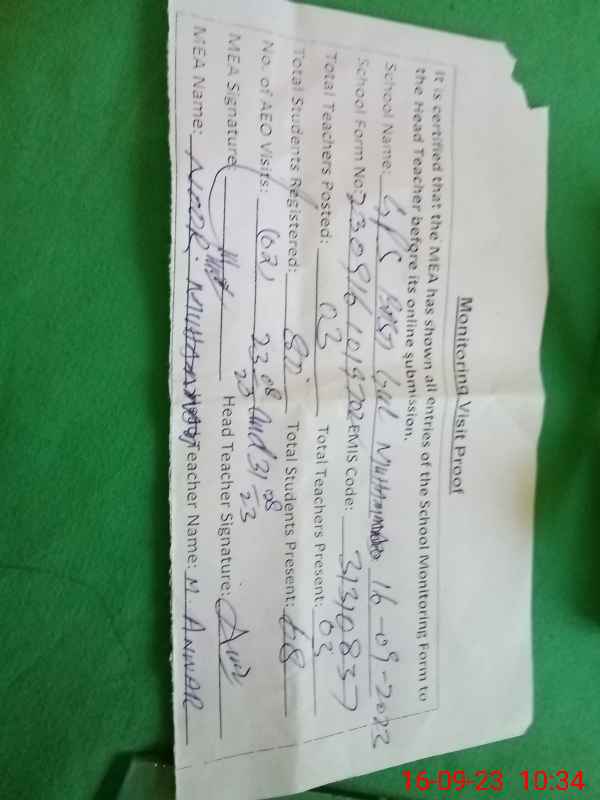 Monitoring Visit Proof
It is certified that the MEA has shown all entries of the School Monitoring Form to
the Head Teacher before its online submission.
School Name: GPS Gul Muhammad 16-09-2023
School Form No: 2309161019702 EMIS Code: 31310837
Total Teachers Posted: 03 Total Teachers Present: 03
Total Students Registered: Total Students Present: 68
No. of AEO Visits: (02) 23-08-23 and 31-08-23
MEA Signature: Head Teacher Signature:
MEA Name: NOOR MUHAMMAD Teacher Name: M. ANWAR
16-09-23 10:34